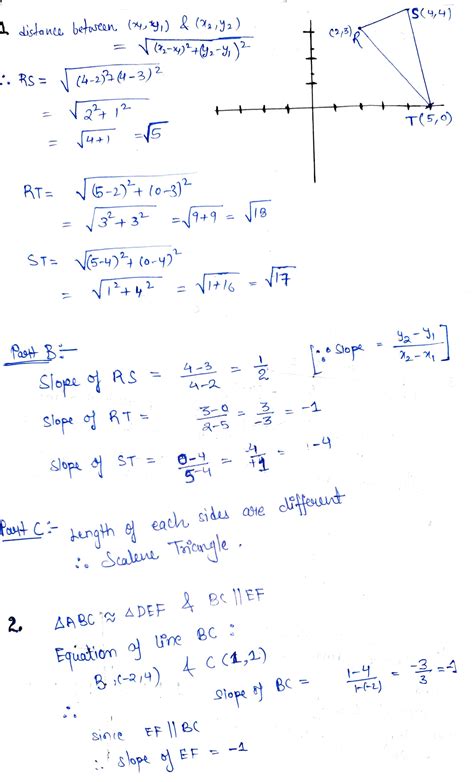 1 distance between (x₁,y₁) & (x₂,y₂)
= √(x₂-x₁)²+(y₂-y₁)²
S(4,4)
(2,3) R
T(5,0)
∴ RS = √(4-2)²+(4-3)²
= √2²+1²
= √4+1 = √5
RT = √(5-2)²+(0-3)²
= √3²+3² = √9+9 = √18
ST = √(5-4)²+(0-4)²
= √1²+4² = √1+16 = √17
Part B:-
Slope of RS = 4-3/4-2 = 1/2 [∵ Slope = y₂-y₁/x₂-x₁]
Slope of RT = 3-0/2-5 = 3/-3 = -1
Slope of ST = 0-4/5-4 = 4/+1 = -4
Part C:- Length of each sides are different
∴ Scalene Triangle.
2. △ABC ≈ △DEF & BC || EF
Equation of line BC :
B (-2,4) & C(1,1)
Slope of BC = 1-4/1-(-2) = -3/3 = -1
∴
since EF || BC
∴ slope of EF = -1